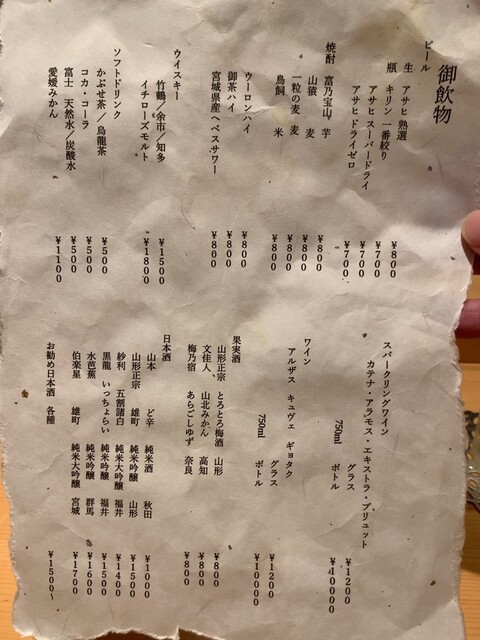 御飲物
ビール
生 アサヒ 熟選 ¥800
瓶 キリン 一番絞り ¥700
アサヒスーパードライ ¥700
アサヒドライゼロ ¥700
焼酎 富乃宝山 芋 ¥800
山猿 麦 ¥800
一粒の麦 麦 ¥800
鳥飼 米 ¥800
ウーロンハイ ¥800
御茶ハイ ¥800
宮城県産へべスサワー ¥800
ウイスキー
竹鶴／余市／知多 ¥1500
イチローズモルト ¥1800
ソフトドリンク
かぶせ茶／烏龍茶 ¥500
コカ・コーラ ¥500
富士 天然水／炭酸水 ¥500
愛媛みかん ¥1100
スパークリングワイン
カテナ・アラモス・エキストラ・ブリュット
グラス ¥1200
750ml ボトル ¥10000
ワイン
アルザス キュヴェ ギョタク
グラス ¥1200
750ml ボトル ¥10000
果実酒
山形正宗 とろとろ梅酒 山形 ¥800
文佳人 山北みかん 高知 ¥800
梅乃宿 あらごしゆず 奈良 ¥800
日本酒
山本 ど辛 純米酒 秋田 ¥1000
山形正宗 雄町 純米吟醸 山形 ¥1500
紗利 五割諸白 純米大吟醸 福井 ¥1400
黒龍 いっちょらい 純米吟醸 福井 ¥1500
水芭蕉 純米吟醸 群馬 ¥1600
伯楽星 雄町 純米大吟醸 宮城 ¥1700
お勧め日本酒 各種 ¥1500〜